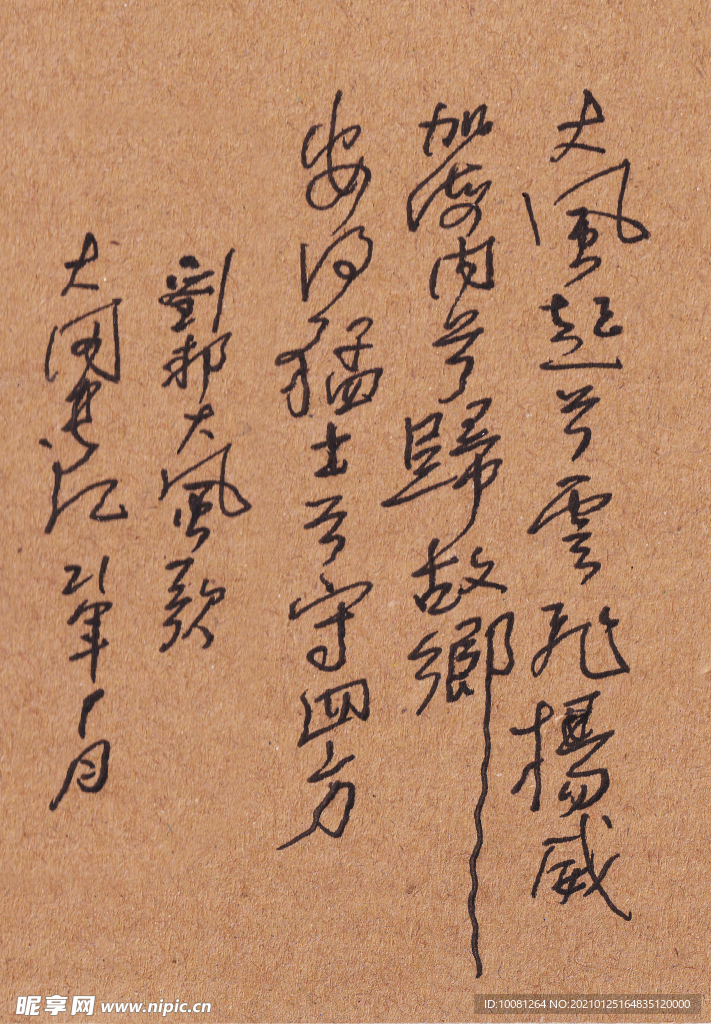 大風起兮雲飛揚威
加海內兮歸故鄉
安得猛士兮守四方
劉邦大風歌
大國書记
21年1月
昵享网 www.nipic.cn
ID:10081264 NO:20210125164835120000